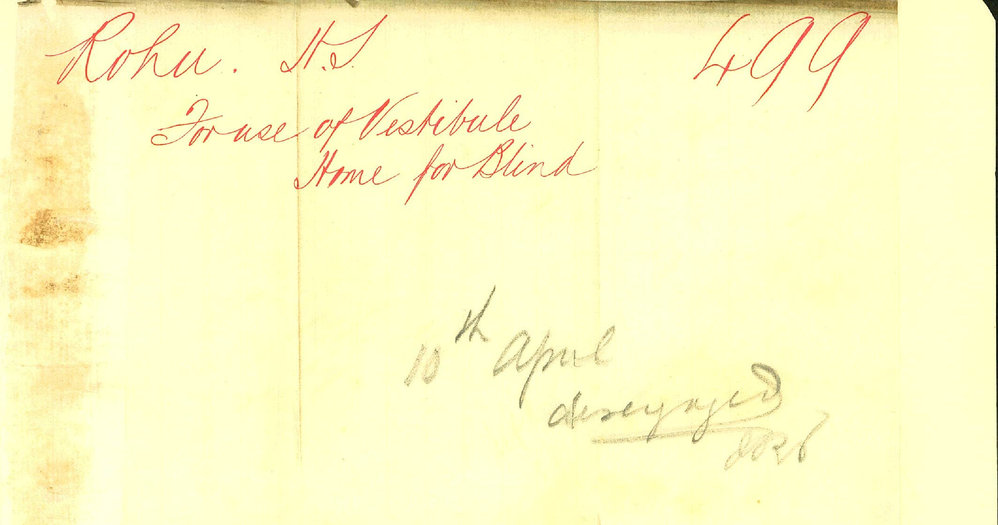 Rohu. H.S. 499
For use of Vestibule
Home for Blind
10th April
disengaged